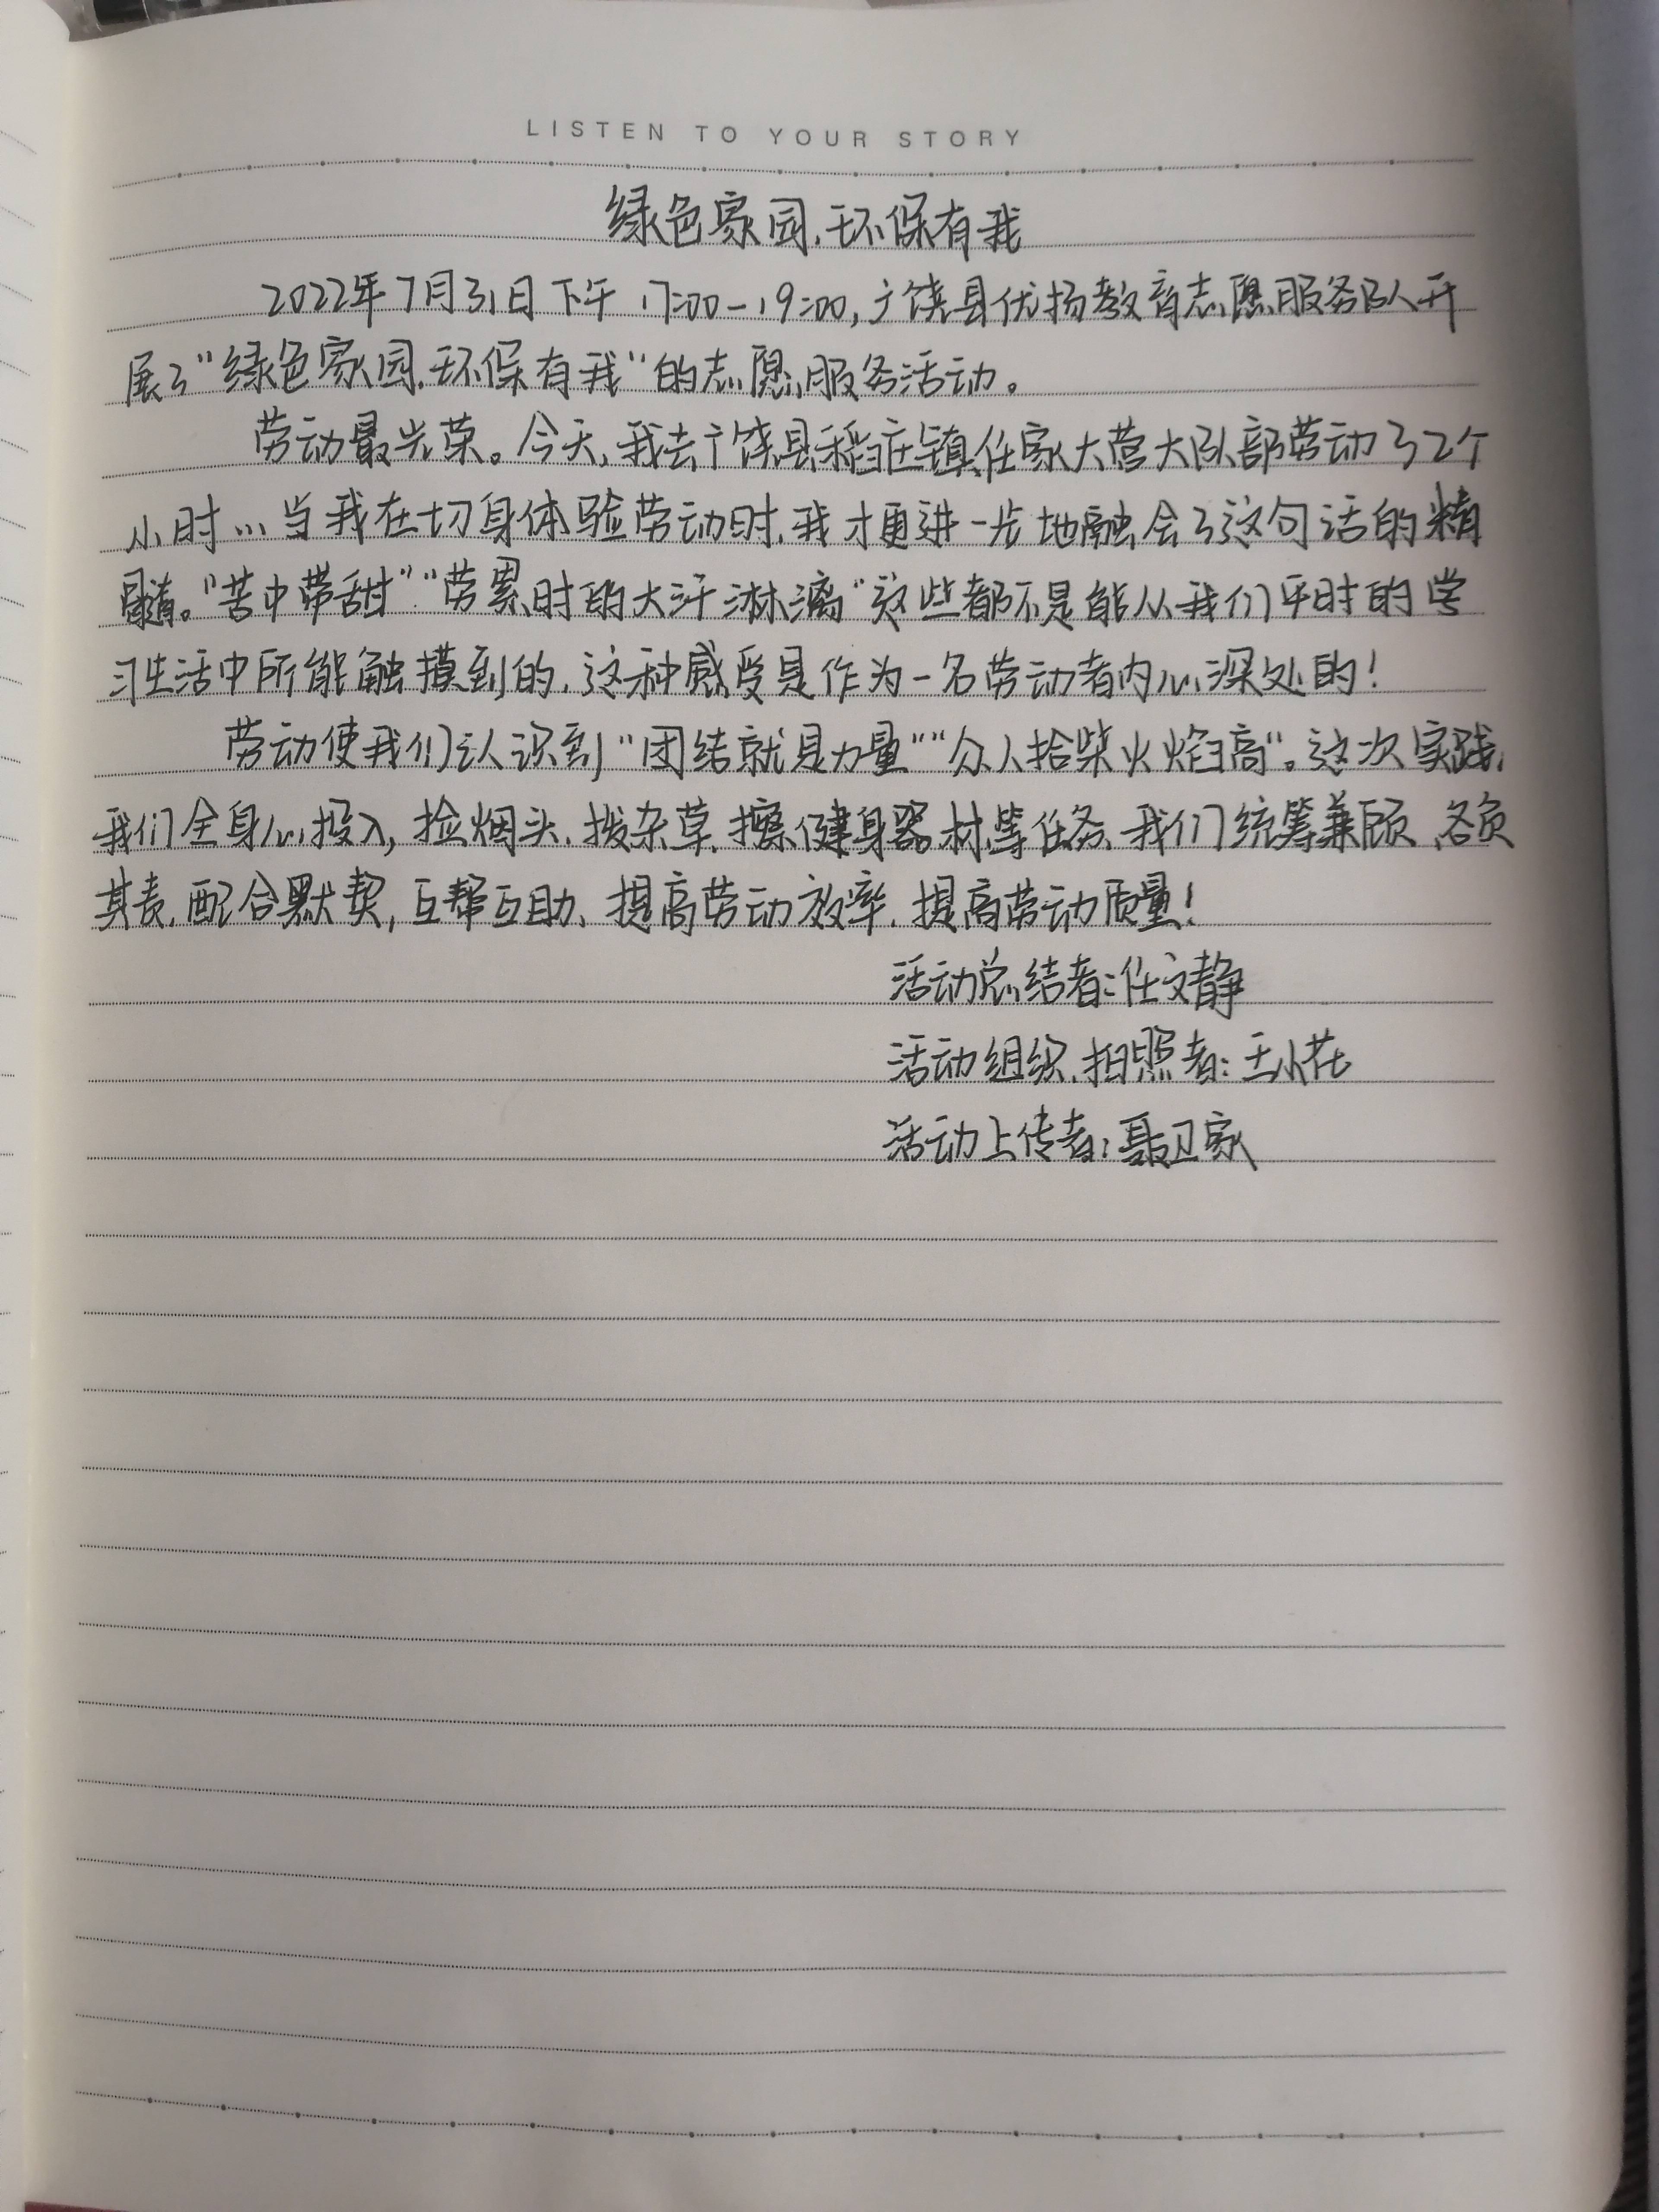 LISTEN TO YOUR STORY
绿色家园,环保有我
2022年7月31日下午 17:00-19:00,广饶县优扬教育志愿服务队开
展了"绿色家园,环保有我"的志愿服务活动。
劳动最光荣。今天,我去广饶县稻庄镇任家大营大队部劳动了2个
小时…当我在切身体验劳动时,我才更进一步地融会了这句话的精
髓。"苦中带甜""劳累时的大汗淋漓"这些都不是能从我们平时的学
习生活中所能触摸到的,这种感受是作为一名劳动者内心深处的!
劳动使我们认识到"团结就是力量""众人拾柴火焰高"。这次实践,
我们全身心投入,捡烟头,拔杂草,擦健身器材等任务,我们统筹兼顾,各负
其责,配合默契,互帮互助,提高劳动效率,提高劳动质量!
活动总结者:任文静
活动组织,拍照者:王小花
活动上传者:聂卫家